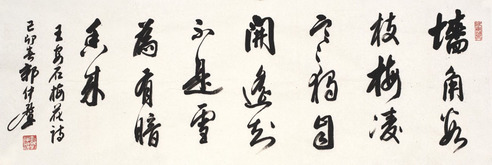 墙角数
枝梅凌
寒獨自
開遥知
不是雪
為有暗
香来
王安石梅花诗
己卯春郭仲選